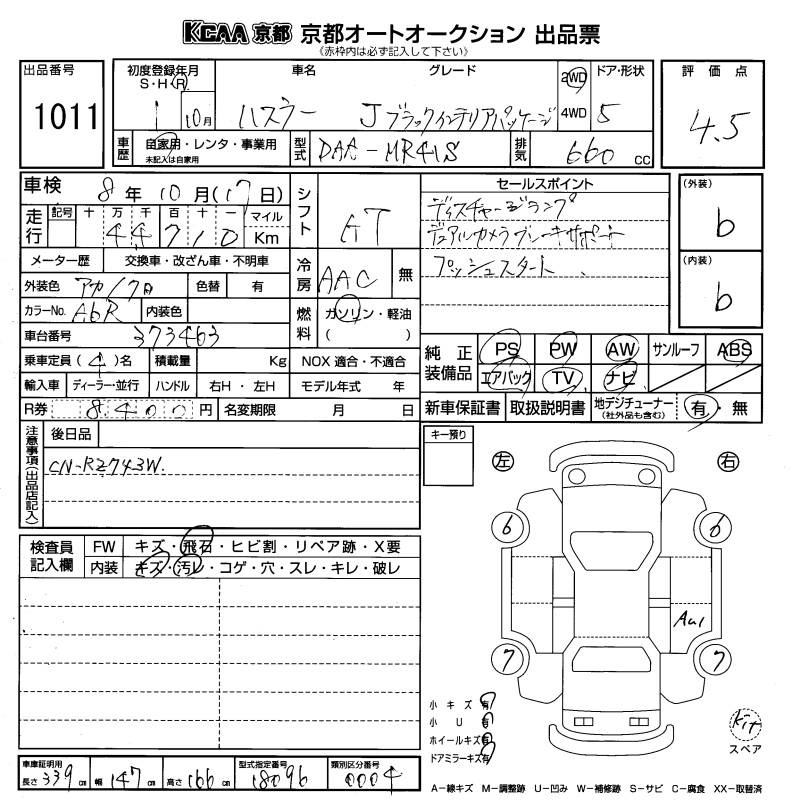 KCAA 京都 京都オートオークション 出品票
《赤枠内は必ず記入して下さい》
出品番号
1011
初度登録年月
S・H・R
1 10月
車名
ハスラー
グレード
J ブラックインテリアパッケージ
2WD
4WD
ドア・形状
5
評価点
4.5
車歴
自家用・レンタ・事業用
未記入は自家用
型式
DAA-MR41S
排気
660 CC
車検
8年10月(17日)
走行
記号 十 万 千 百 十 一
44710
マイル
Km
シフト
AT
メーター歴
交換車・改ざん車・不明車
外装色
アカ/クロ
色替
有
冷房
AAC
無
カラーNo.
A6R
内装色
燃料
ガソリン・軽油
( )
車台番号
373463
乗車定員(4)名
積載量
Kg
NOX 適合・不適合
輸入車
ディーラー・並行
ハンドル
右H・左H
モデル年式 年
R券
8,400円
名変期限
月 日
セールスポイント
ディスチャージランプ
デュアルカメラブレーキサポート
プッシュスタート
(外装)
b
(内装)
b
純正装備品
PS PW AW サンルーフ ABS
エアバック TV ナビ
新車保証書
取扱説明書
地デジチューナー
(社外品も含む)
有・無
注意事項(出品店記入)
後日品
CN-R2743W
キー預り
左
右
6
6
7
7
AU1
検査員記入欄
FW
キズ・飛石・ヒビ割・リペア跡・X要
内装
キズ・汚レ・コゲ・穴・スレ・キレ・破レ
小キズ有
小U有
ホイールキズ有
ドアミラーキズ有
Kit
スペア
車庫証明用
長さ 339cm
幅 147cm
高さ 166cm
型式指定番号
18096
類別区分番号
0004
A-線キズ M-調整跡 U-凹み W-補修跡 S-サビ C-腐食 XX-取替済